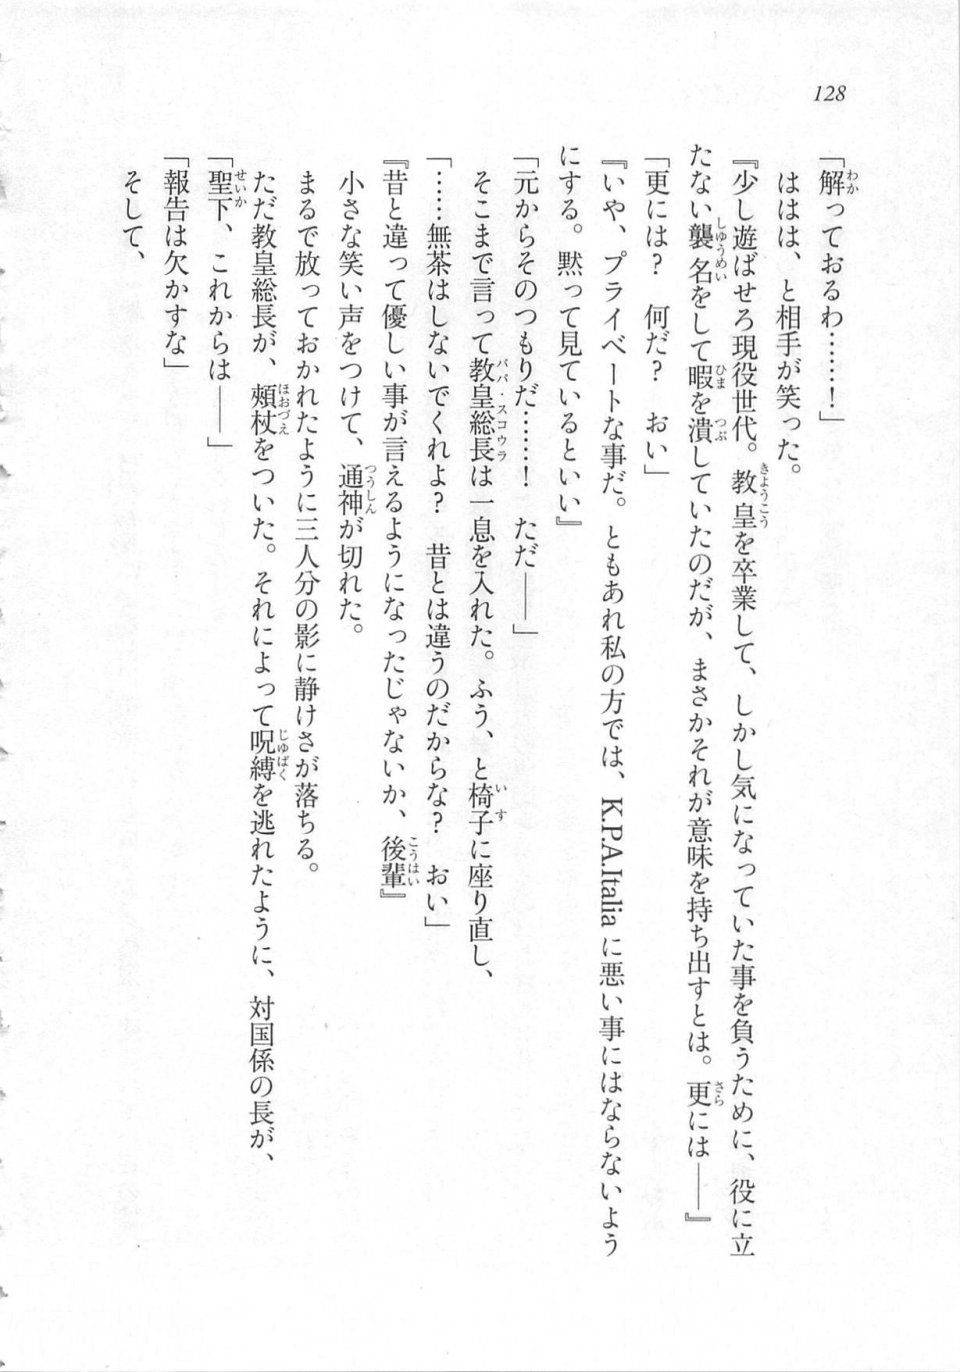 128
「解っておるわ……！」
ははは、と相手が笑った。
『少し遊ばせろ現役世代。教皇を卒業して、しかし気になっていた事を負うために、役に立
たない襲名をして暇を潰していたのだが、まさかそれが意味を持ち出すとは。更には――』
「更には？　何だ？　おい」
『いや、プライベートな事だ。ともあれ私の方では、K.P.A.Italiaに悪い事にはならないよう
にする。黙って見ているといい』
「元からそのつもりだ……！　ただ――」
そこまで言って教皇総長は一息を入れた。ふう、と椅子に座り直し、
「……無茶はしないでくれよ？　昔とは違うのだからな？　おい」
『昔と違って優しい事が言えるようになったじゃないか、後輩』
小さな笑い声をつけて、通神が切れた。
まるで放っておかれたように三人分の影に静けさが落ちる。
ただ教皇総長が、頰杖をついた。それによって呪縛を逃れたように、対国係の長が、
「聖下、これからは――」
「報告は欠かすな」
そして、